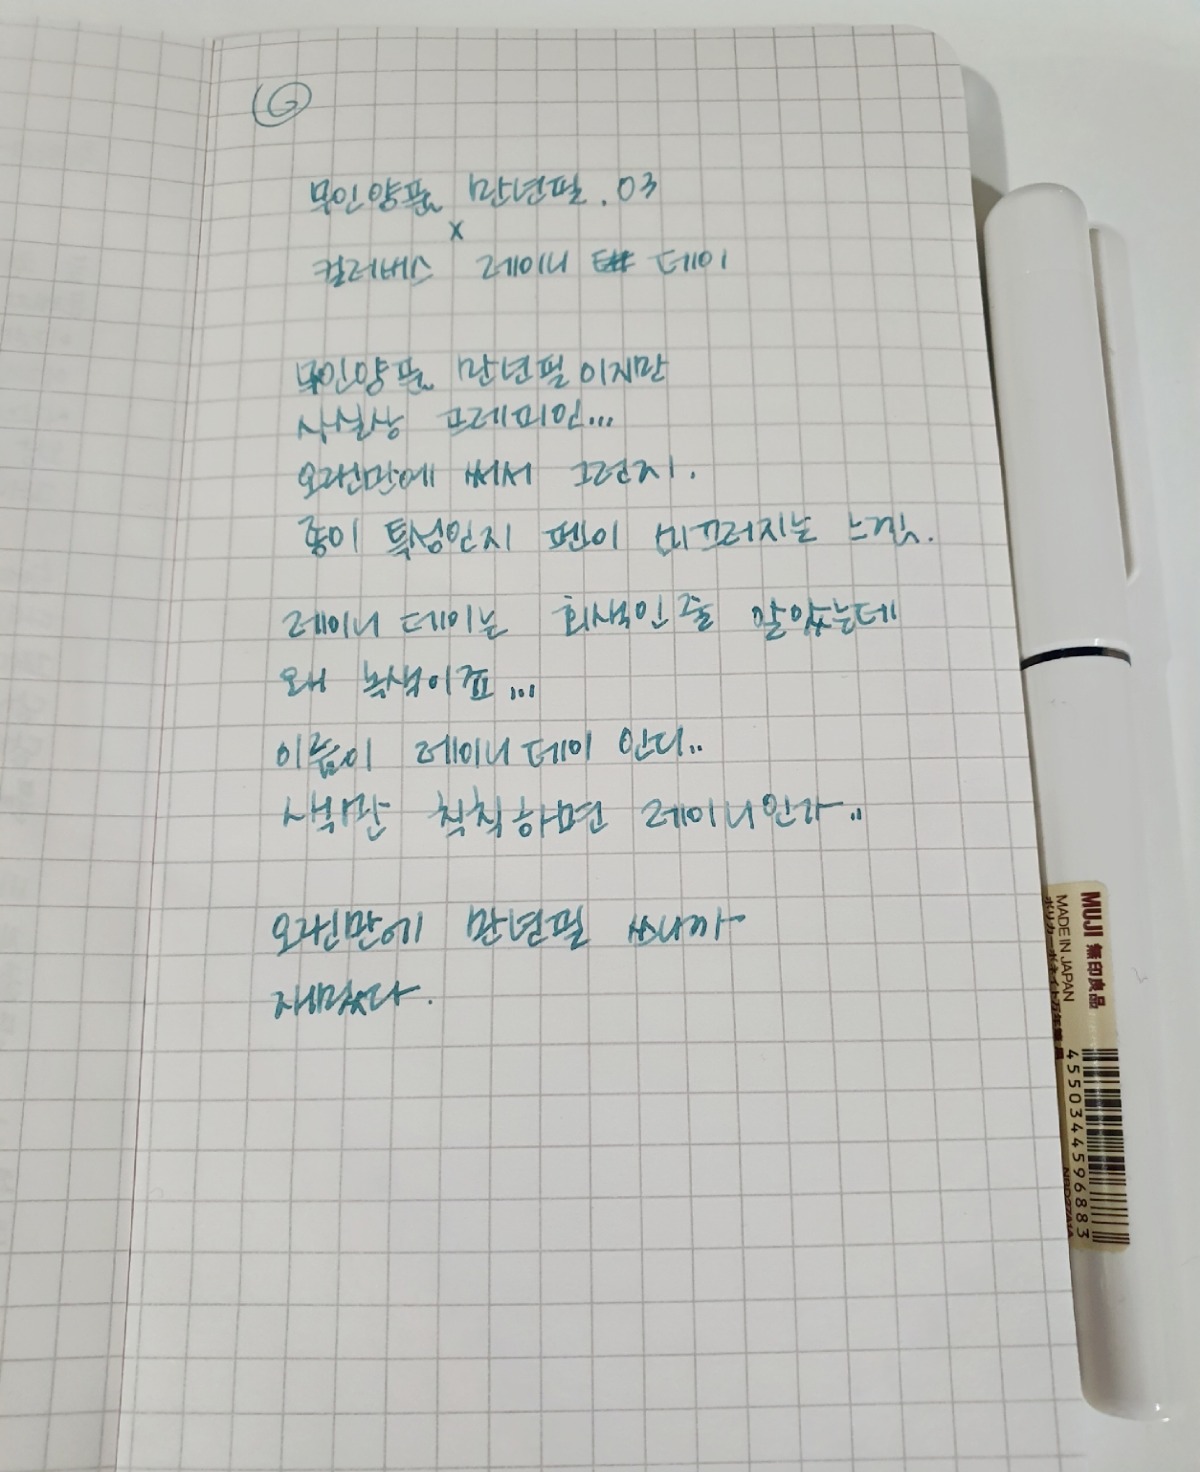 6
무인양품 만년필. 03
x
컬러버스 레이니 데이
무인양품 만년필이지만
사실상 프레피인...
오랜만에 써서 그런지.
종이 특성인지 펜이 미끄러지는 느낌.
레이니 데이는 회색인 줄 알았는데
왜 녹색이죠...
이름이 레이니 데이 인디..
색만 칙칙하면 레이니인가..
오랜만에 만년필 쓰니까
재밌었다.
MUJI 無印良品
MADE IN JAPAN
ポリカーボネイト万年筆
4550344596883